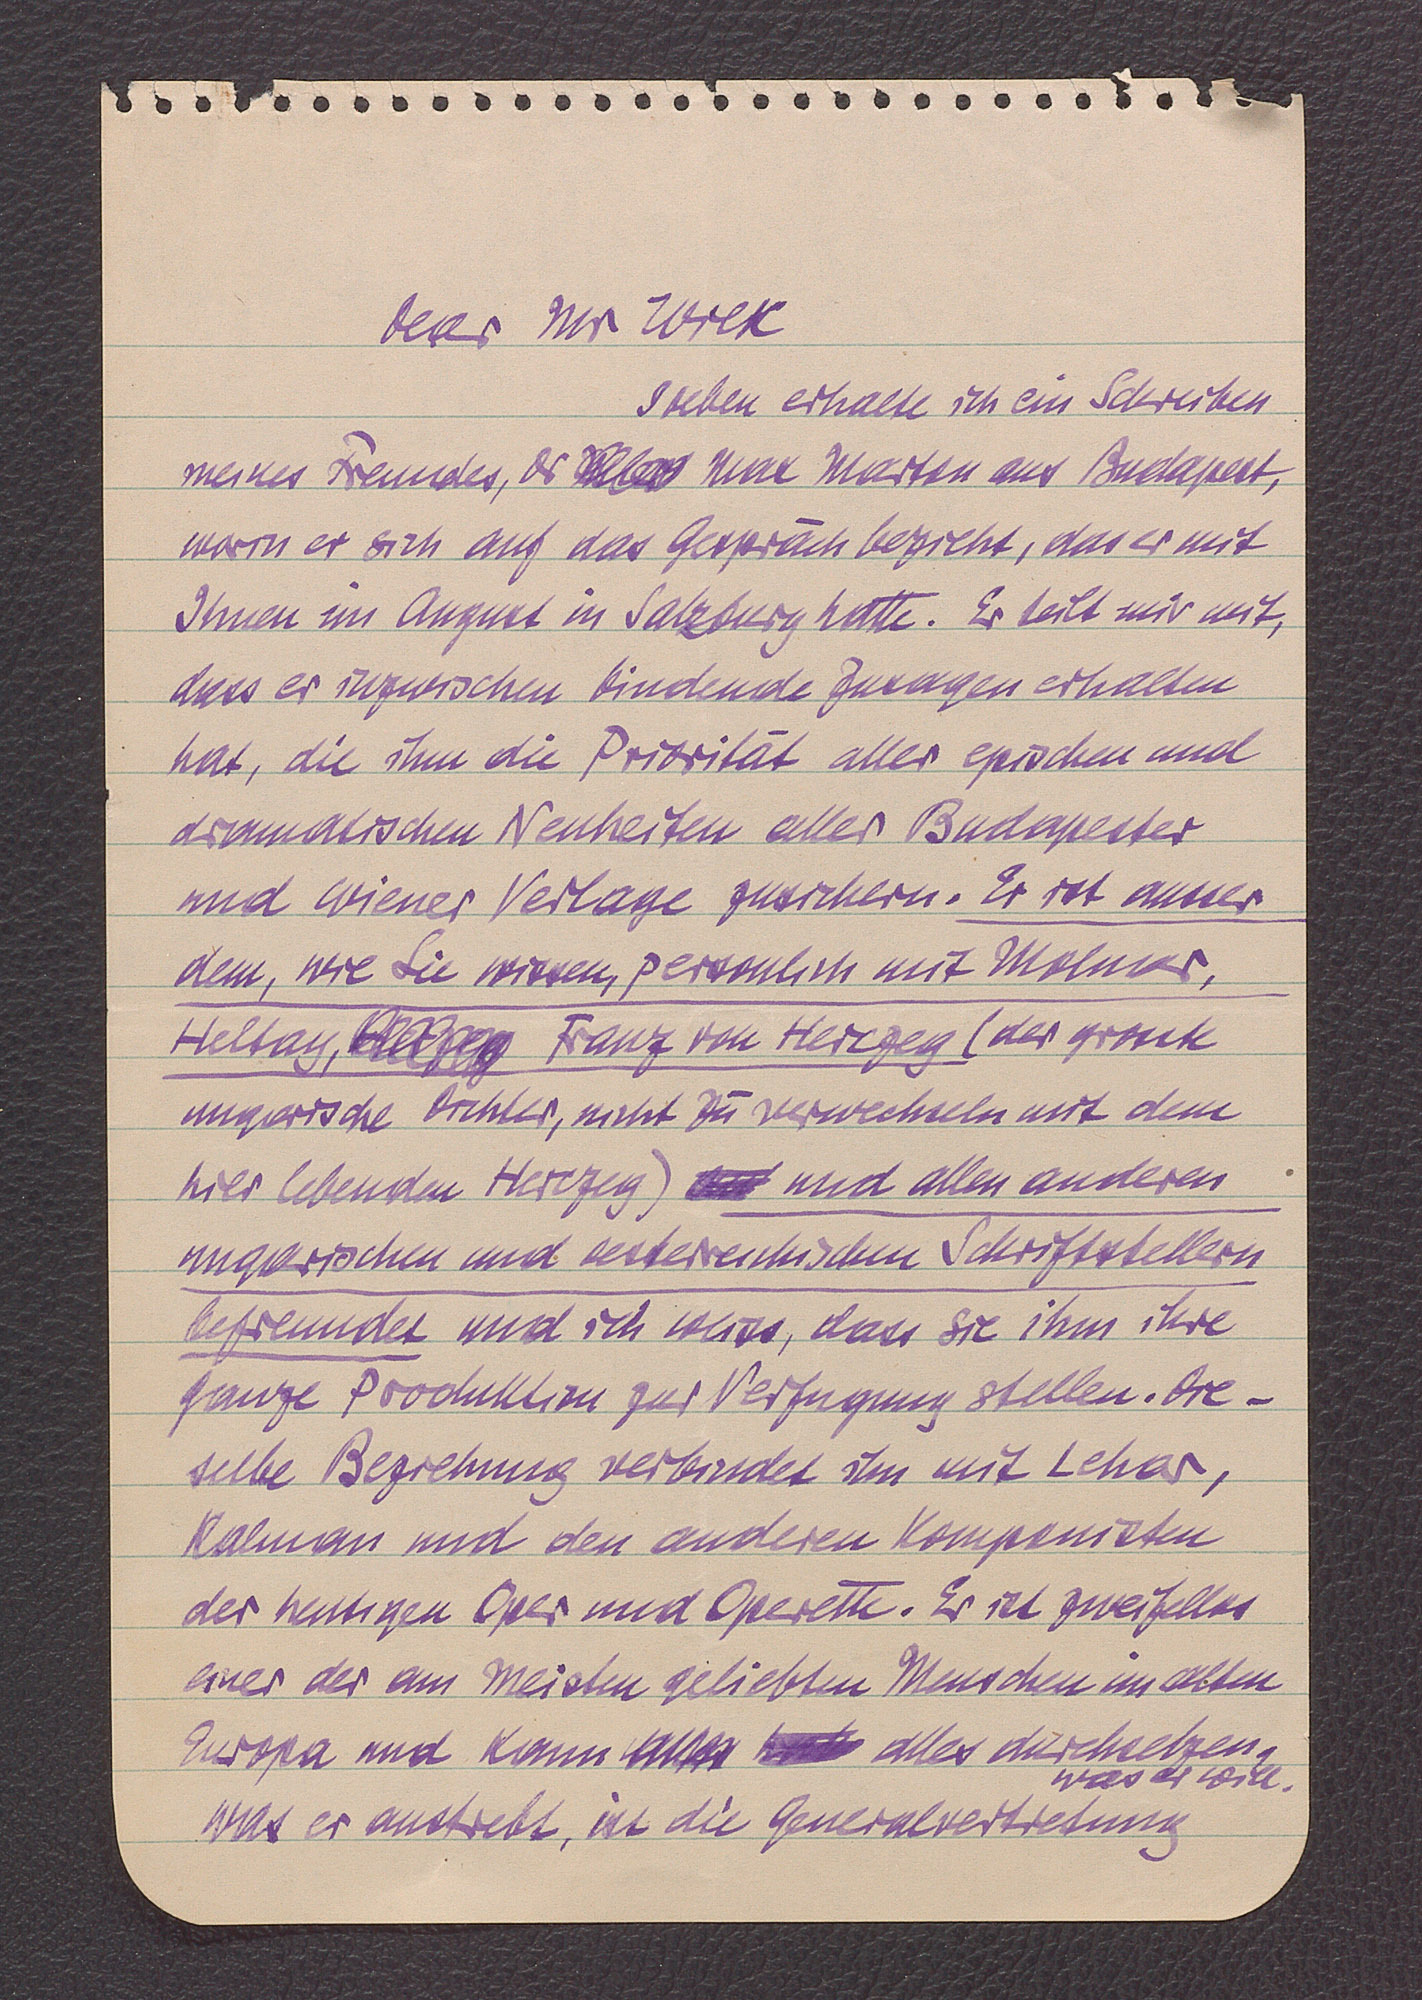 Dear Mr Wilk
Soeben erhalte ich ein Schreiben
meines Freundes, Dr Max Marton aus Budapest,
worin er sich auf das Gespräch bezieht, das er mit
Ihnen im August in Salzburg hatte. Er teilt mir mit,
dass er inzwischen bindende Zusagen erhalten
hat, die ihm die Priorität aller epischen und
dramatischen Neuheiten aller Budapester
und Wiener Verlage zusichern. Er ist ausser
dem, wie Sie wissen, persönlich mit Molnar,
Heltay, Franz von Herczeg (der grosse
ungarische Dichter, nicht zu verwechseln mit dem
hier lebenden Herczeg) und allen anderen
ungarischen und oesterreichischen Schriftstellern
befreundet und ich weiss, dass sie ihm ihre
ganze Produktion zur Verfügung stellen. Die-
selbe Beziehung verbindet ihn mit Lehar,
Kalman und den anderen Komponisten
der heutigen Oper und Operette. Er ist zweifellos
einer der am Meisten geliebten Menschen im alten
Europa und kann alles durchsetzen,
was er will.
Was er anstrebt, ist die Generalvertretung